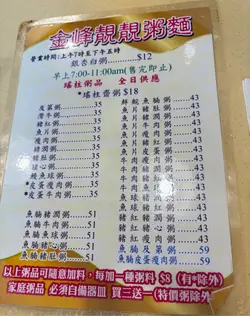 金峰靚靚粥麵
營業時間:上午7時至下午五時
銀杏白粥 $12
早上7:00-11:00am(售完即止)
瑤柱粥品 全日供應
*瑤柱齋粥$18
及第粥 35
滑牛粥 35
魚片粥 35
魚腩粥 35
魚球粥 35
豬潤粥 35
豬心粥 35
豬紅粥 35
瘦肉粥 35
*皮蛋瘦肉粥 35
魚腩豬潤粥 51
魚腩牛肉粥 51
魚腩魚球粥 51
魚腩豬心粥 51
魚腩豬肚粥 51
鮮鯇魚腩粥 43
魚片魚腩粥 43
魚片牛肉粥 43
魚片瘦肉粥 43
皮蛋魚片粥 43
皮蛋牛肉粥 43
牛肉瘦肉粥 43
牛肉豬潤粥 43
豬紅豬潤粥 43
豬紅豬心粥 43
豬紅瘦肉粥 43
魚腩及第粥 59
*魚腩皮蛋瘦肉粥 59
以上粥品可隨意加料,每加一種粥料 $8 (有*除外)
家庭粥品 必須自備器皿 買三送一(特價粥除外)